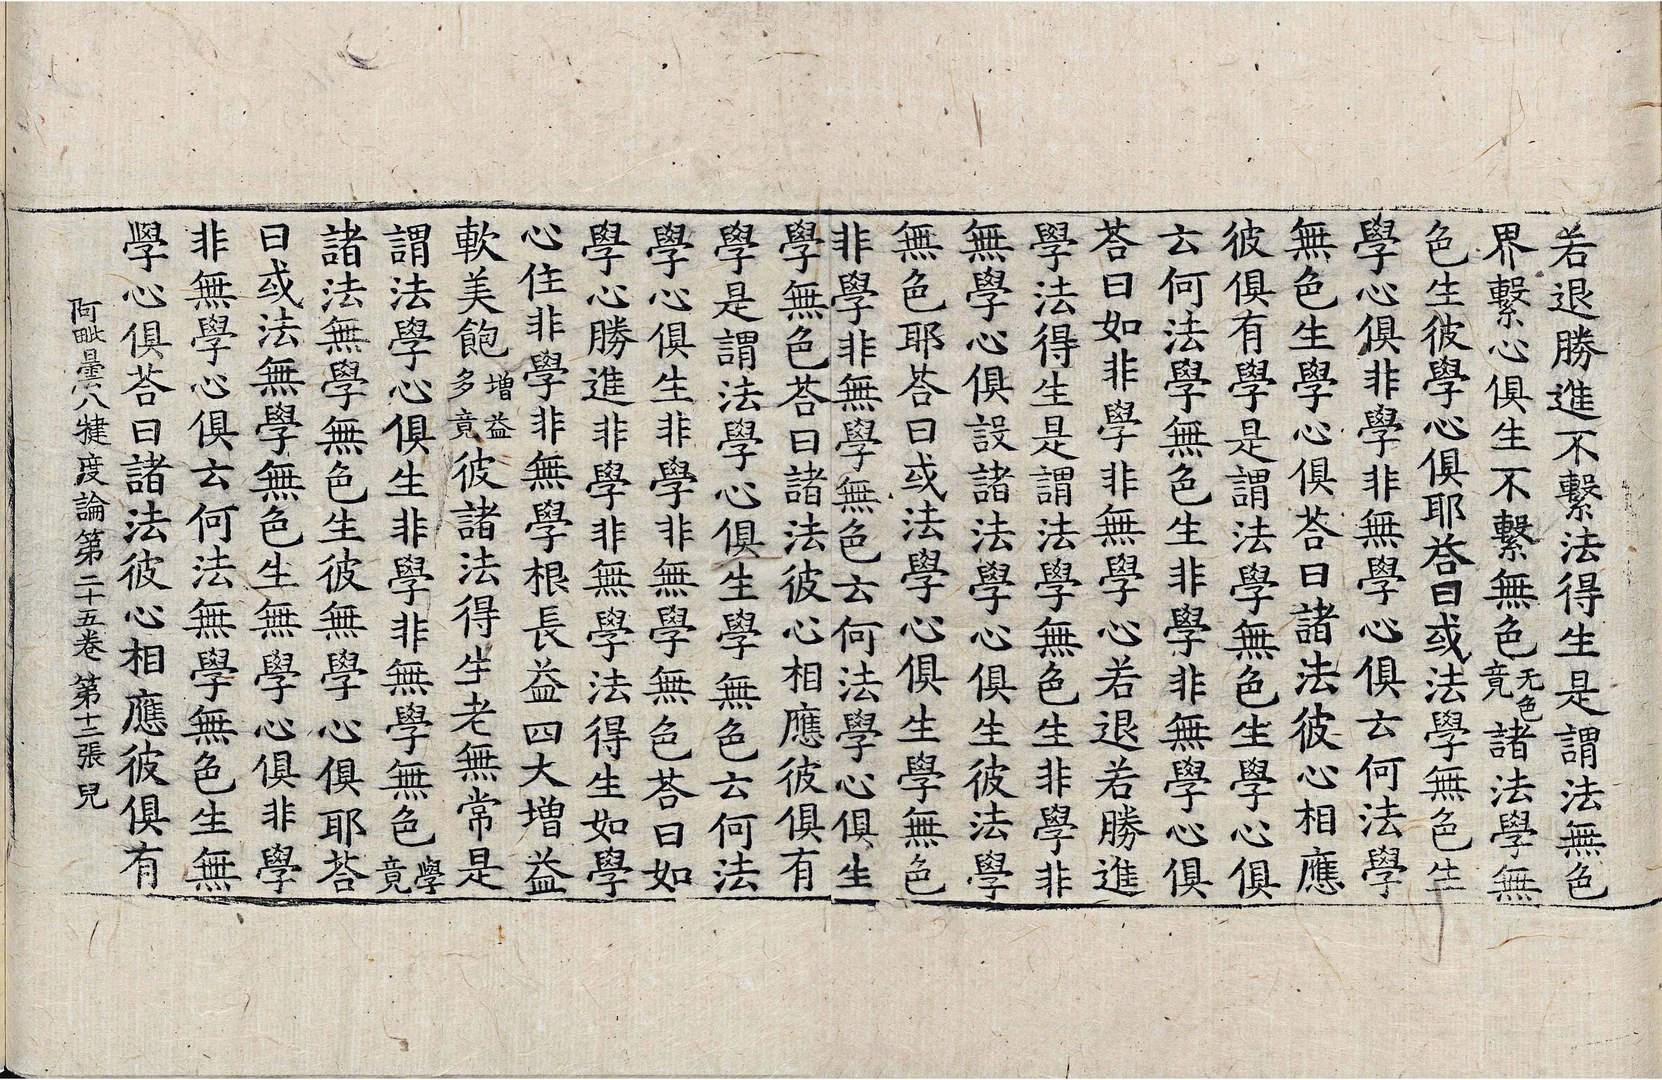 若退勝進不繫法得生是謂法無色
界繫心俱生不繫無色无色竟諸法學無
色生彼學心俱耶荅曰或法學無色生
學心俱非學非無學心俱云何法學
無色生學心俱荅曰諸法彼心相應
彼俱有學是謂法學無色生學心俱
云何法學無色生非學非無學心俱
荅曰如非學非無學心若退若勝進
學法得生是謂法學無色生非學非
無學心俱設諸法學心俱生彼法學
無色耶荅曰或法學心俱生學無色
非學非無學無色云何法學心俱生
學無色荅曰諸法彼心相應彼俱有
學是謂法學心俱生學無色云何法
學心俱生非學非無學無色荅曰如
學心勝進非學非無學法得生如學
心住非學非無學根長益四大增益
軟美飽增益多竟彼諸法得生老無常是
謂法學心俱生非學非無學無色學竟
諸法無學無色生彼無學心俱耶荅
曰或法無學無色生無學心俱非學
非無學心俱云何法無學無色生無
學心俱荅曰諸法彼心相應彼俱有
阿毗曇八揵度論第二十五卷 第十二張 兒